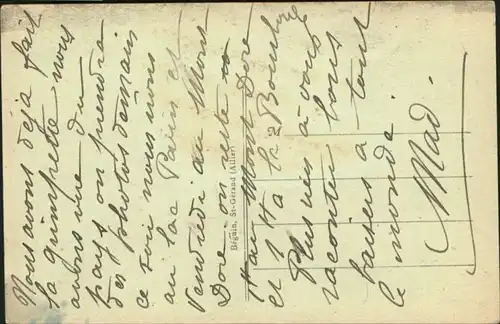 Nous avons déjà fait
la guimpette nous
aurons vue du
pays on prendra
des photos demain
ce soir nous nous
au lac Pavin et
Vendredi au Mont
Dore on reste
1 H au Mont Dore
et 1 H a la Bourboule
Plus rien à vous
raconter bons
baisers a tout
le monde.
Mad.
Béguin, St-Gérand (Allier)